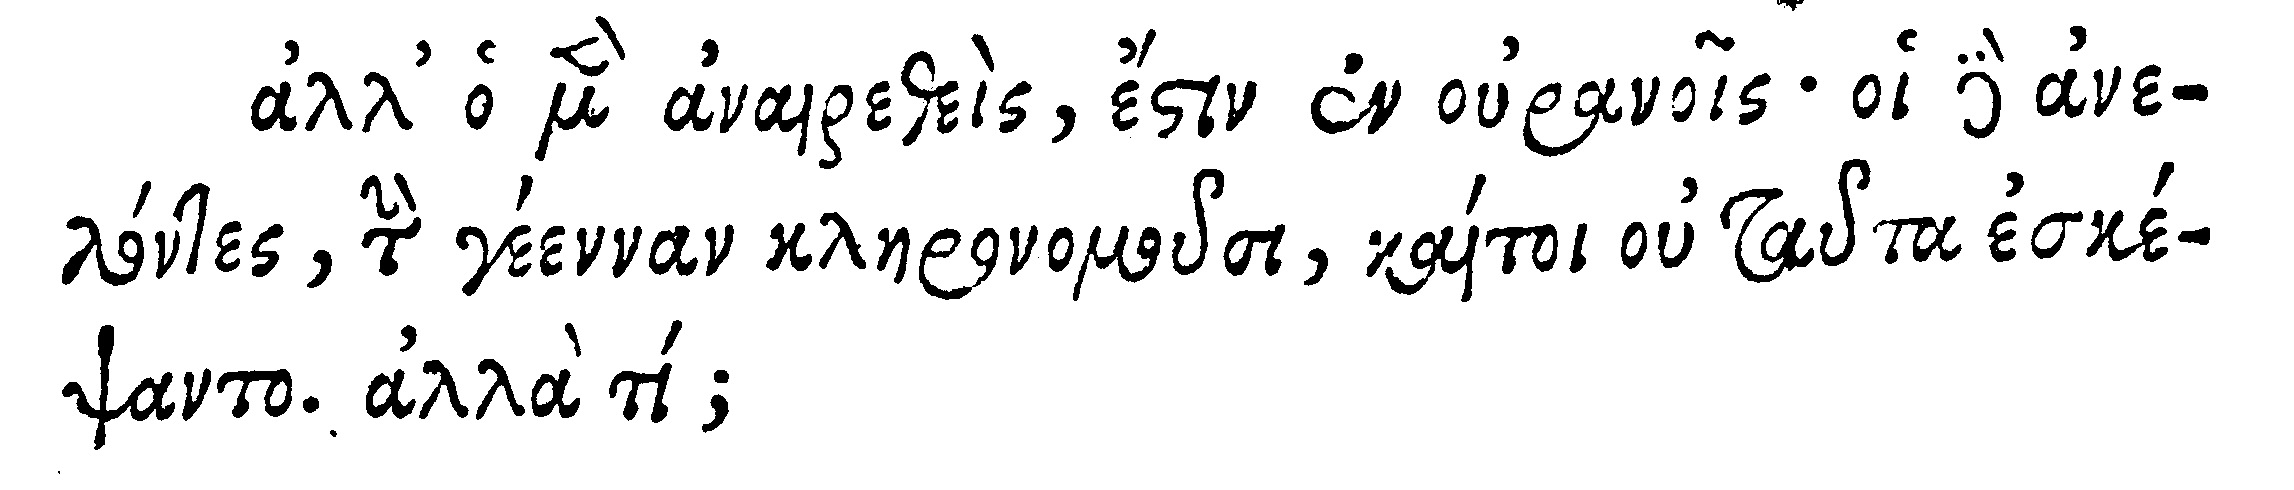 ἀλλ' ὁ μὲν ἀναιρεθεὶς, ἔστιν ἐν οὐρανοῖς· οἱ δὲ ἀνε-
λόντες, τὴν γέενναν κληρονομοῦσι, καίτοι οὐ ταῦτα ἐσκέ-
ψαντο. ἀλλὰ τί;